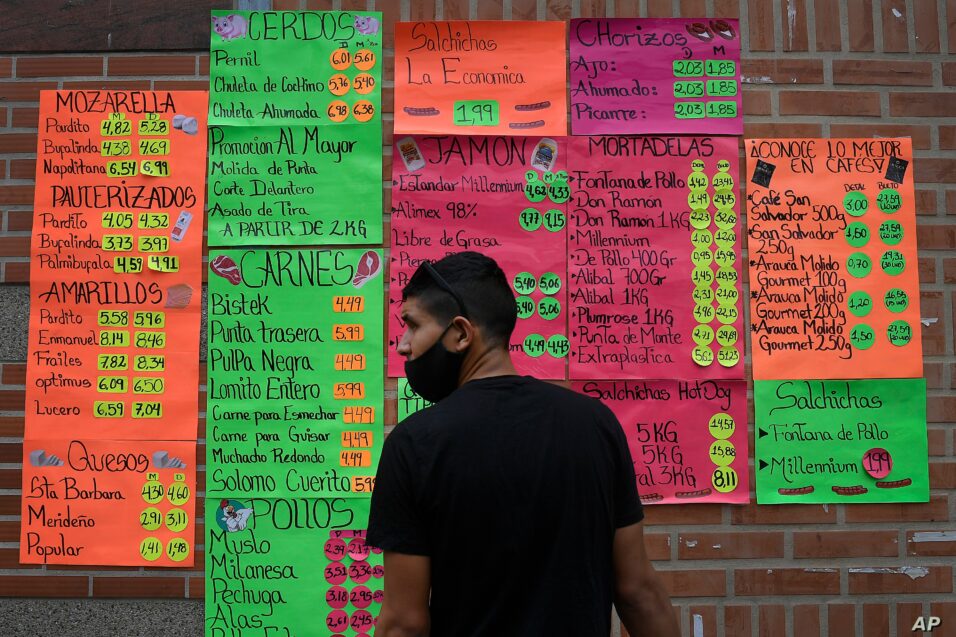 MOZARELLA
M D
Pardito 4,82 5,28
Bufalinda 4,38 4,69
Napolitana 6,54 6,99
PAUTERIZADOS
Pardito 4,05 4,32
Bufalinda 3,73 3,97
Palmibufala 4,57 4,91
AMARILLOS
Pardito 5,58 5,96
Emmanuel 8,14 8,46
Frailes 7,82 8,34
optimus 6,09 6,50
Lucero 6,59 7,04
Quesos
M D
Sta Barbara 4,30 4,60
Merideño 2,91 3,11
Popular 1,41 1,48
CERDOS
D M
Pernil 6,01 5,61
Chuleta de Cochino 5,76 5,40
Chuleta Ahumada 6,98 6,38
Promoción Al Mayor
Molida de Punta
Corte Delantero
Asado de Tira
A PARTIR DE 2KG
CARNES
Bistek 4,49
Punta trasera 5,99
Pulpa Negra 4,49
Lomito Entero 5,99
Carne para Esmechar 4,49
Carne para Guisar 4,49
Muchacho Redondo 4,49
Solomo Cuerito 5,99
POLLOS
D M
Muslo 2,39 2,17
Milanesa 3,51 3,36
Pechuga 3,18 2,95
Alas 2,61 2,45
Salchichas
La Economica
1,99
JAMON
D M
Estandar Millennium 4,62 4,33
Alimex 98% 7,77 7,15
Libre de Grasa
5,40 5,06
5,40 5,06
4,49 4,43
CHorizos
D M
Ajo: 2,03 1,85
Ahumado: 2,03 1,85
Picante: 2,03 1,85
MORTADELAS
Fontana de Pollo
Don Ramón
Don Ramón 1KG
Millennium
De Pollo 400Gr
Alibal 700Gr
Alibal 1KG
Plumrose 1KG
Punta de Monte
Extraplastica
Salchichas HotDog
5KG 14,57
5KG 15,88
3KG 8,11
¿CONOCE LO MEJOR
EN CAFES?
DETAL BULTO
Café San
Salvador 500g 3,00
San Salvador
250g 1,50
Arauca Molido
Gourmet 100g 0,70
Arauca Molido
Gourmet 200g 1,20
Arauca Molido
Gourmet 250g 1,50
Salchichas
Fontana de Pollo
Millennium 1,99
AP